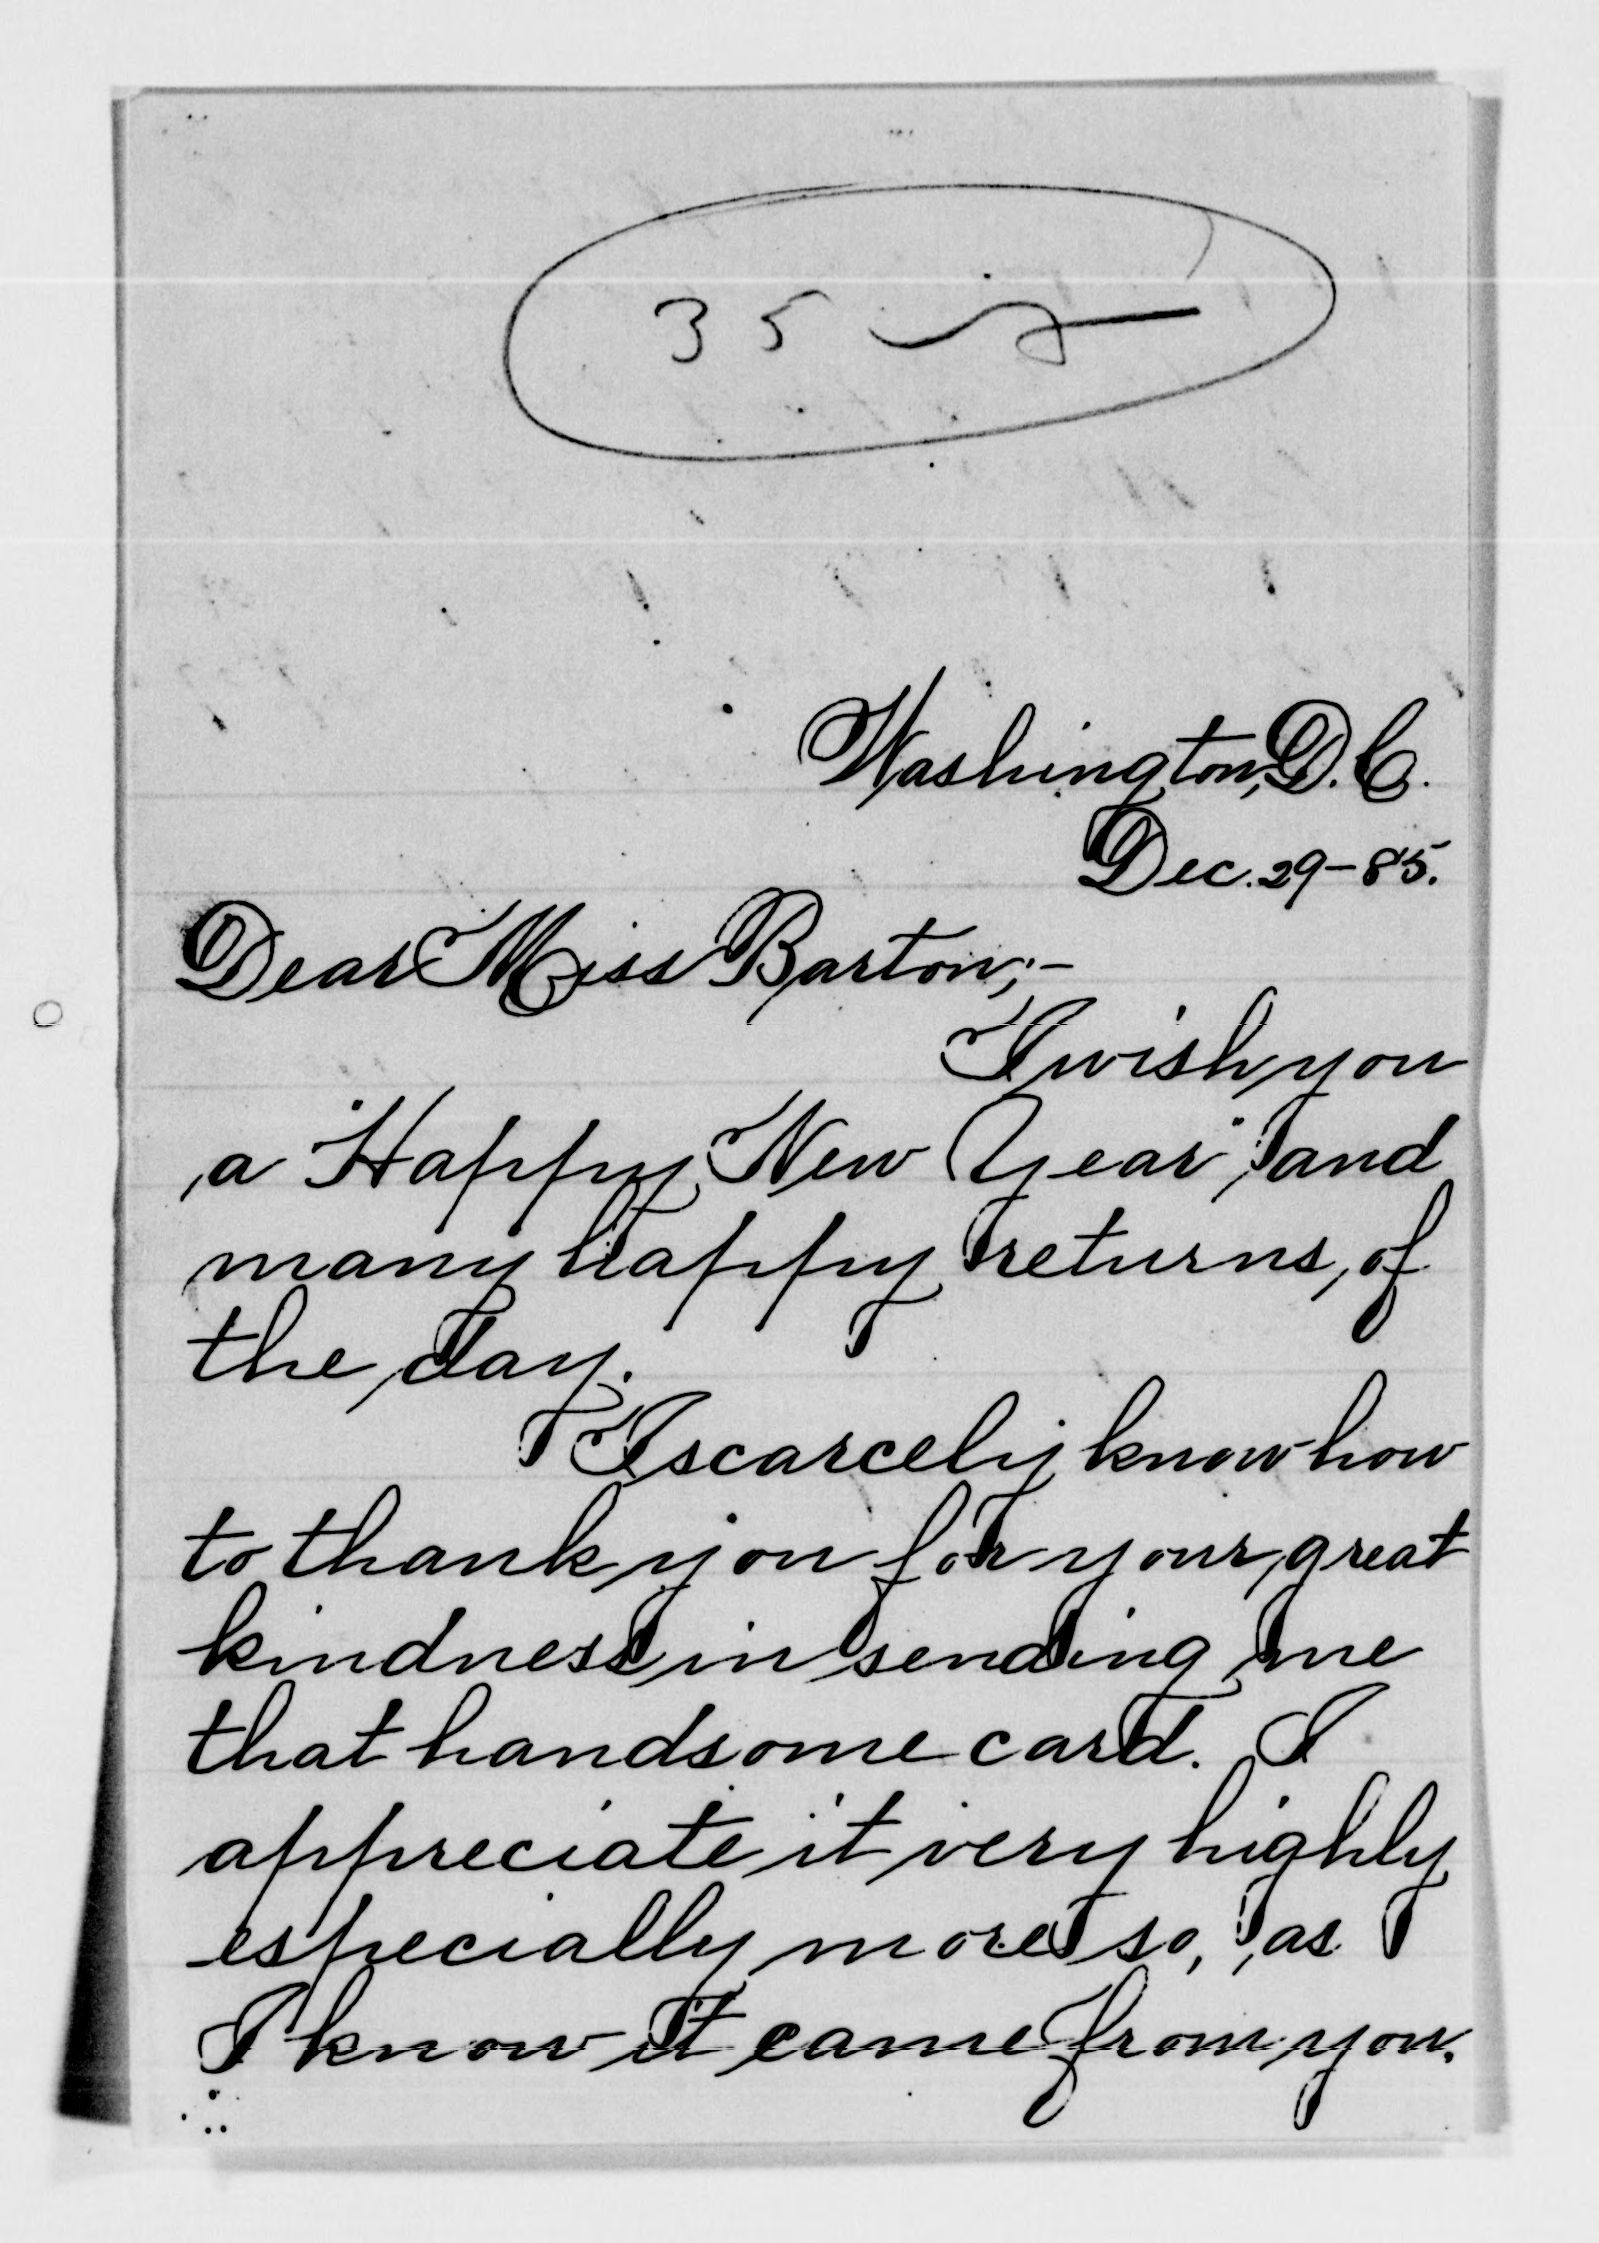 35
Washington, D.C.
Dec. 29-85.
Dear Miss Barton;-
I wish you
a Happy New Year, and
many happy returns, of
the day.
I scarcely know how
to thank you for your great
kindness in sending me
that handsome card. I
appreciate it very highly
especially more so, as
I know it came from you.